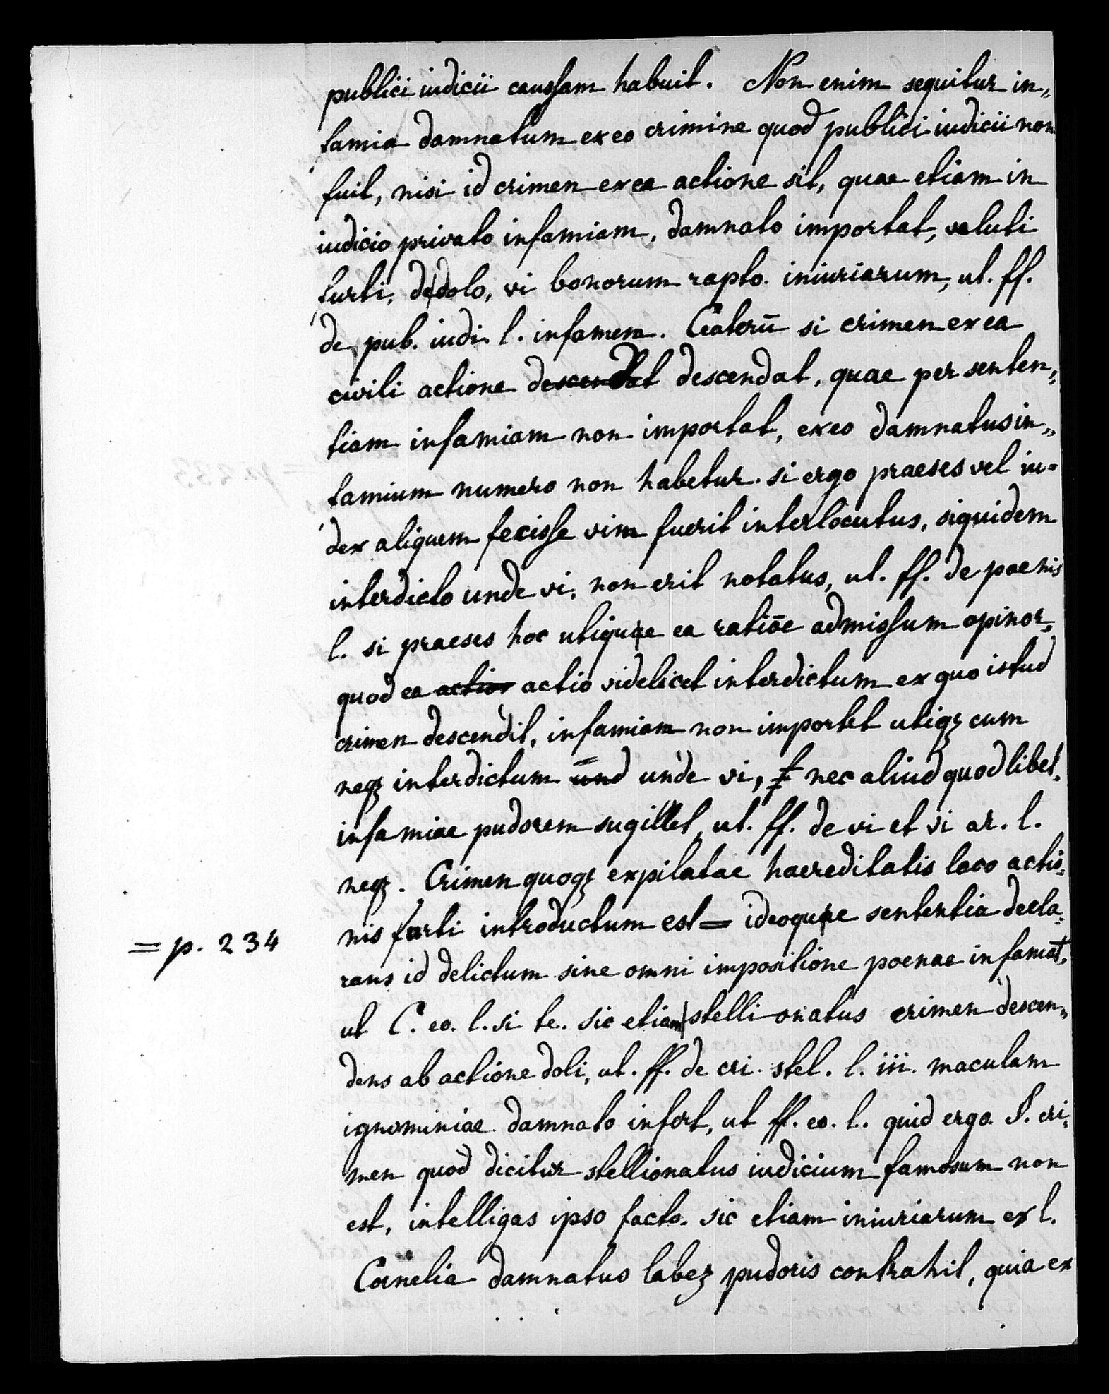 publici iudicii caussam habuit. Non enim sequitur in„
famia damnatum ex eo crimine quod publici iudicii non
fuit, nisi id crimen ex ea actione sit, quae etiam in
iudicio privato infamiam, damnato importat, veluti
furti, de dolo, vi bonorum rapto. iniuriarum, ut. ff.
de pub. iudi. l. infamem. Ceaterū si crimen ex ea
civili actione descendat descendat, quae per senten„
tiam infamiam non importat, ex eo damnatus in„
famium numero non habetur. si ergo praeses vel iu=
dex aliquem fecisse vim fuerit interlocutus, siquidem
interdicto unde vi, non erit notatus, ut. ff. de poenis
l. si praeses hoc utiquae ea ratiōe admissum opinor,
quod ea actior actio videlicet interdictum ex quo istud
crimen descendit, infamiam non importet utiqz cum
neqz interdictum und unde vi, nec aliud quod libet
infamiae pudorem sugillet, ut. ff. de vi et vi ar. l.
neqz. Crimen quoqz expilatae haereditatis loco actio=
nis furti introductum est = ideoquae sententia decla=
= p. 234
rans id delictum sine omni impositione poenae infamat,
ut C. eo. l. si te. sic etiam stellionatus crimen descen„
dens ab actione doli, ut. ff. de cri. stel. l. iii. maculam
ignominiae damnato infert, ut ff. eo. l. quid ergo. §. cri=
men quod dicitur stellionatus iudicium famosum non
est, intelligas ipso facto. sic etiam iniuriarum ex l.
Cornelia damnatus labez pudoris contrahit, quia ex